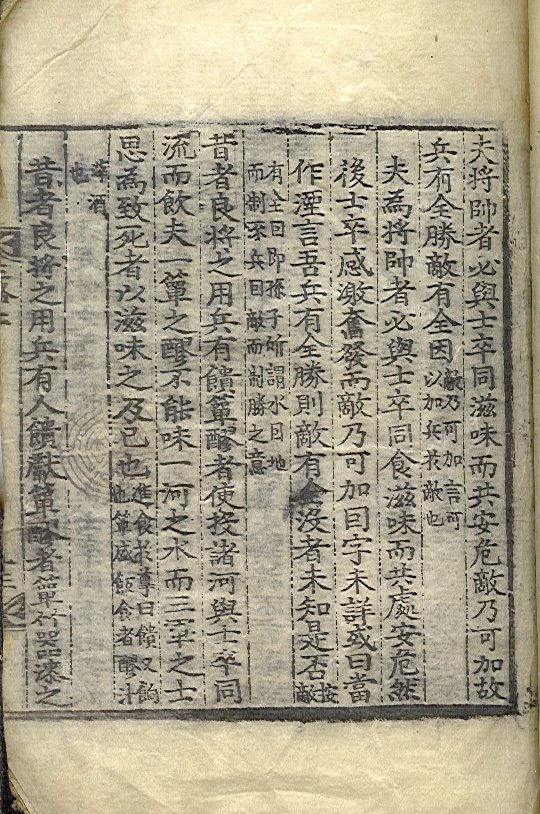 夫將帥者必與士卒同滋味而共安危敵乃可加故
兵有全勝敵有全因
敵乃可加言可
以加兵於敵也
夫爲將帥者必與士卒同食滋味而共處安危然
後士卒感激奮發而敵乃可加囙字未詳或曰當
作湮言吾兵有全勝則敵有全沒者未知是否
按
敵
有全囙即孫子所謂水囙地
而制流兵囙敵而制勝之意
昔者良將之用兵有饋簞醪者使投諸河與士卒同
流而飮夫一簞之醪不能味一河之水而三軍之士
思爲致死者以滋味之及己也
進食於尊曰饋又餉
也簞盛飯食者醪汁
滓酒
也
昔者良將之用兵有人饋獻簞醪者簞竹器漆之